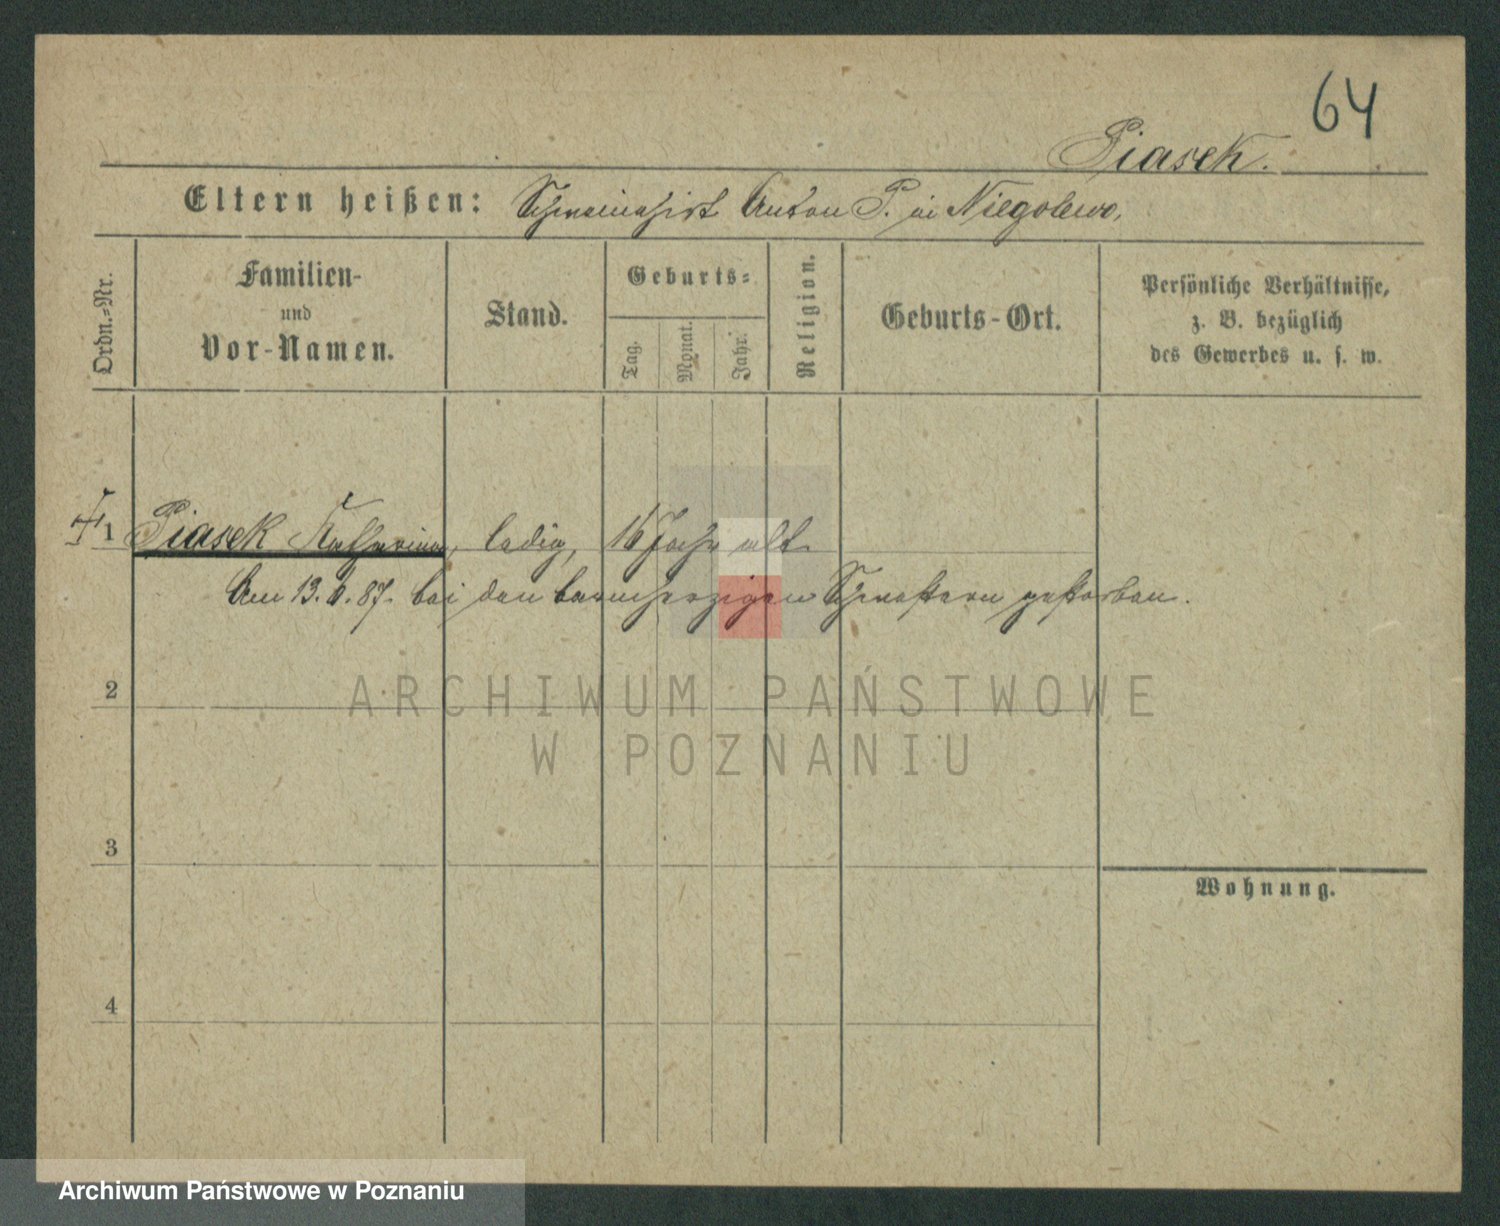 64
Piasek.
Eltern heißen: Schweinehirt Anton P. in Niegolewo.
Ordn.=Nr.
Familien-
und
Vor-Namen.
Stand.
Geburts=
Tag.
Monat.
Jahr.
Religion.
Geburts-Ort.
Persönliche Verhältnisse,
z. B. bezüglich
des Gewerbes u. s. w.
1 Piasek Katharina, ledig, 16 Jahr alt.
Am 13. 6. 87. bei den barmherzigen Schwestern gestorben.
2
ARCHIWUM PAŃSTWOWE
W POZNANIU
3
Wohnung.
4
Archiwum Państwowe w Poznaniu